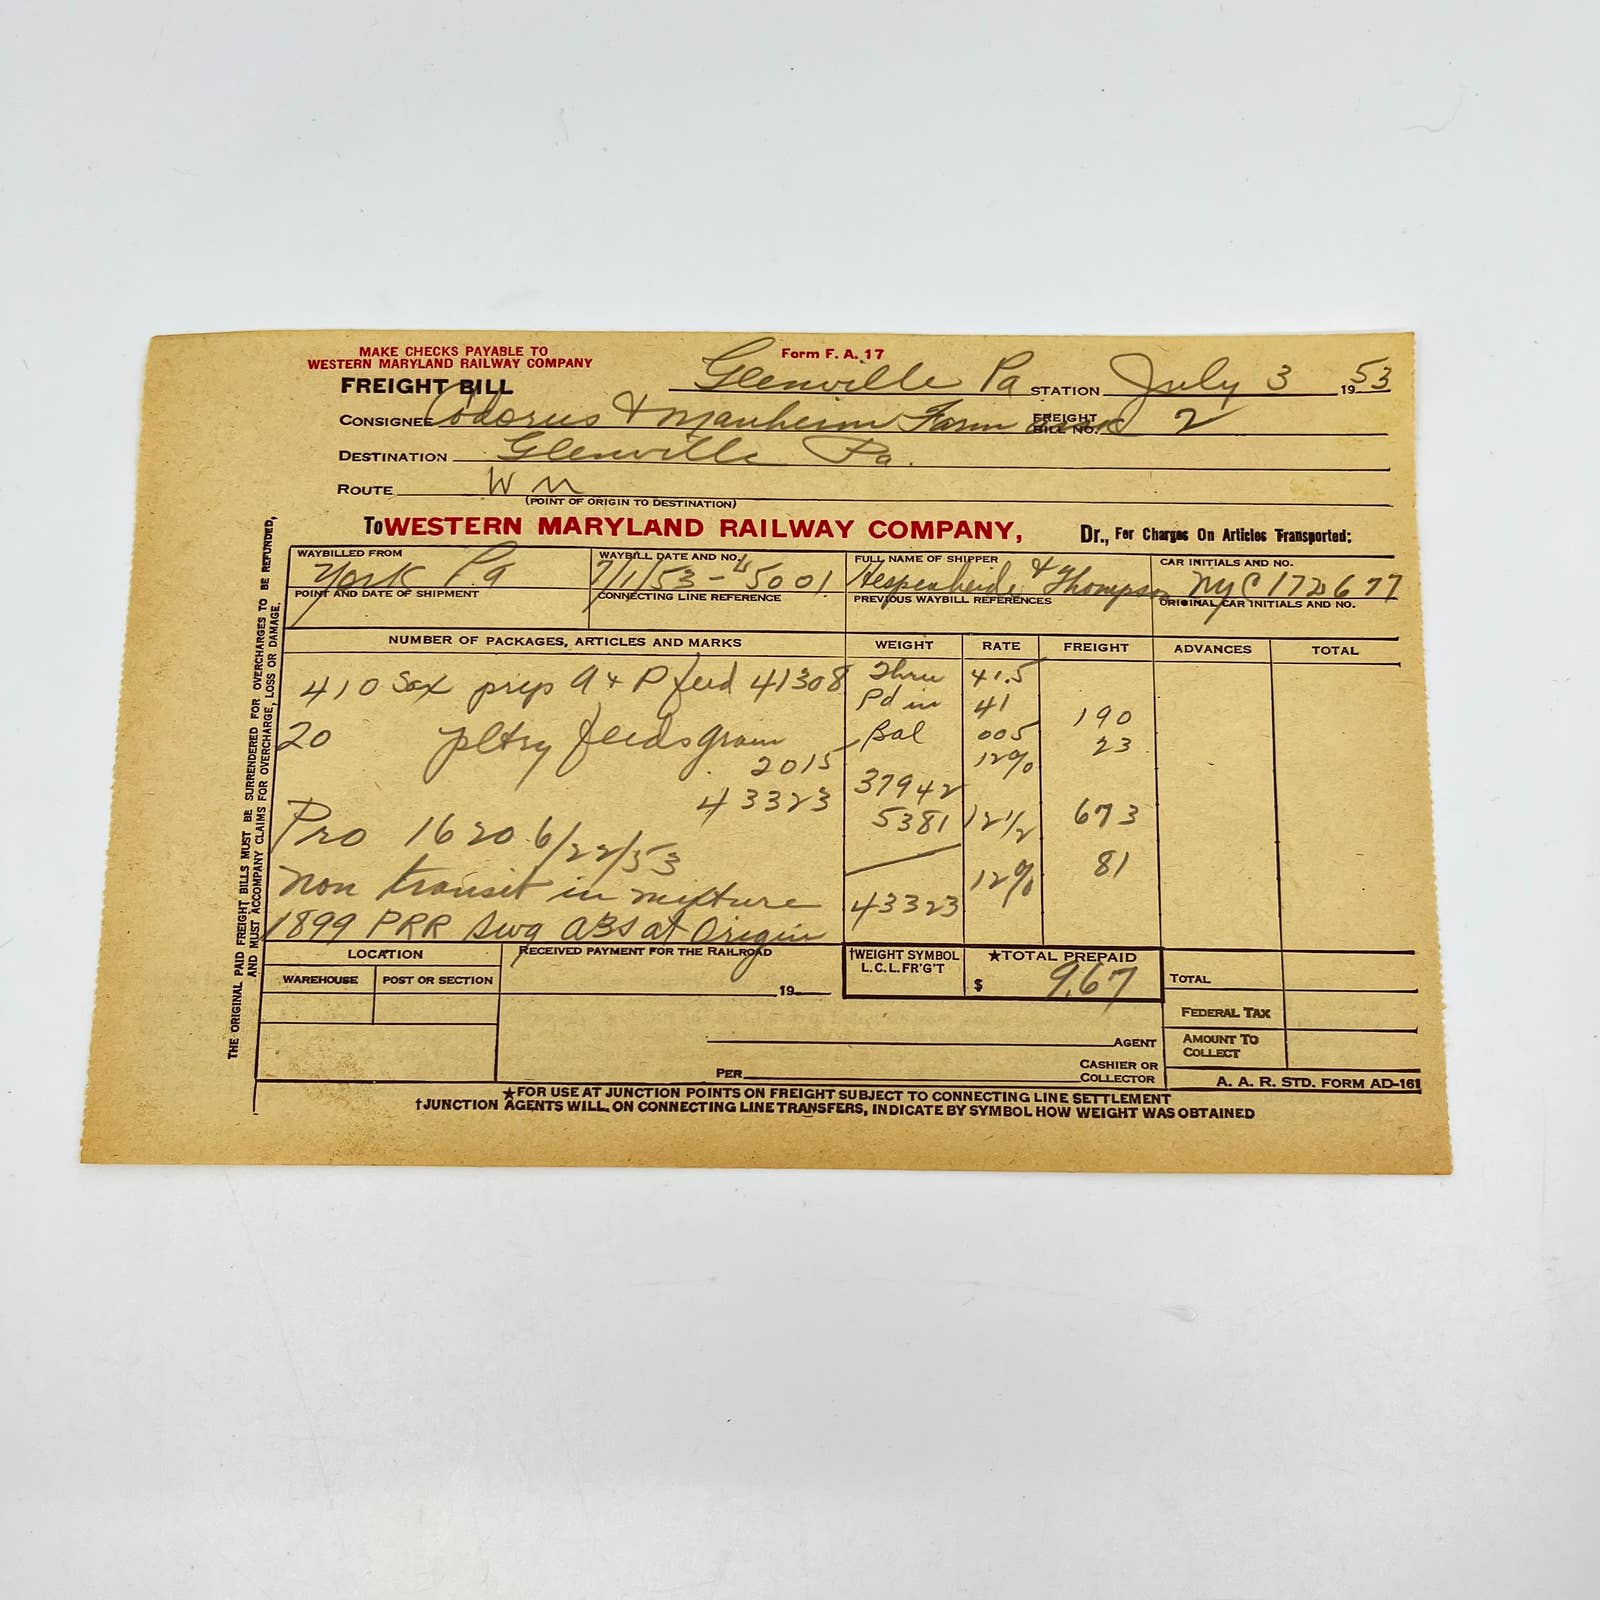 MAKE CHECKS PAYABLE TO
WESTERN MARYLAND RAILWAY COMPANY
Form F. A. 17
FREIGHT BILL
Glenville Pa STATION July 3 1953
CONSIGNEE Codorus & Manheim Farm FREIGHT BILL NO. 2
DESTINATION Glenville Pa.
ROUTE W M
(POINT OF ORIGIN TO DESTINATION)
To WESTERN MARYLAND RAILWAY COMPANY, Dr., For Charges On Articles Transported:
WAYBILLED FROM WAYBILL DATE AND NO. FULL NAME OF SHIPPER CAR INITIALS AND NO.
York Pa 7/1/53 - 45001 Hespenheide & Thompson NYC 172677
POINT AND DATE OF SHIPMENT CONNECTING LINE REFERENCE PREVIOUS WAYBILL REFERENCES ORIGINAL CAR INITIALS AND NO.
NUMBER OF PACKAGES, ARTICLES AND MARKS WEIGHT RATE FREIGHT ADVANCES TOTAL
410 Sax prep A & P feed 41308 Thru 41.5
Pd in 41 190
20 pltry feeds grain Bal 005 23
2015 12%
43323 37942
Pro 1620 6/22/53 5381 12 1/2 673
non transit in mixture 12% 81
1899 PRR Swg ABS at Origin 43323
LOCATION RECEIVED PAYMENT FOR THE RAILROAD †WEIGHT SYMBOL ★TOTAL PREPAID
WAREHOUSE POST OR SECTION L.C.L. FR'G'T $ 9.67 TOTAL
19
FEDERAL TAX
AGENT AMOUNT TO COLLECT
PER CASHIER OR COLLECTOR
A. A. R. STD. FORM AD-161
★FOR USE AT JUNCTION POINTS ON FREIGHT SUBJECT TO CONNECTING LINE SETTLEMENT
†JUNCTION AGENTS WILL, ON CONNECTING LINE TRANSFERS, INDICATE BY SYMBOL HOW WEIGHT WAS OBTAINED
THE ORIGINAL PAID FREIGHT BILLS MUST BE SURRENDERED FOR OVERCHARGES TO BE REFUNDED,
AND MUST ACCOMPANY CLAIMS FOR OVERCHARGE, LOSS OR DAMAGE.